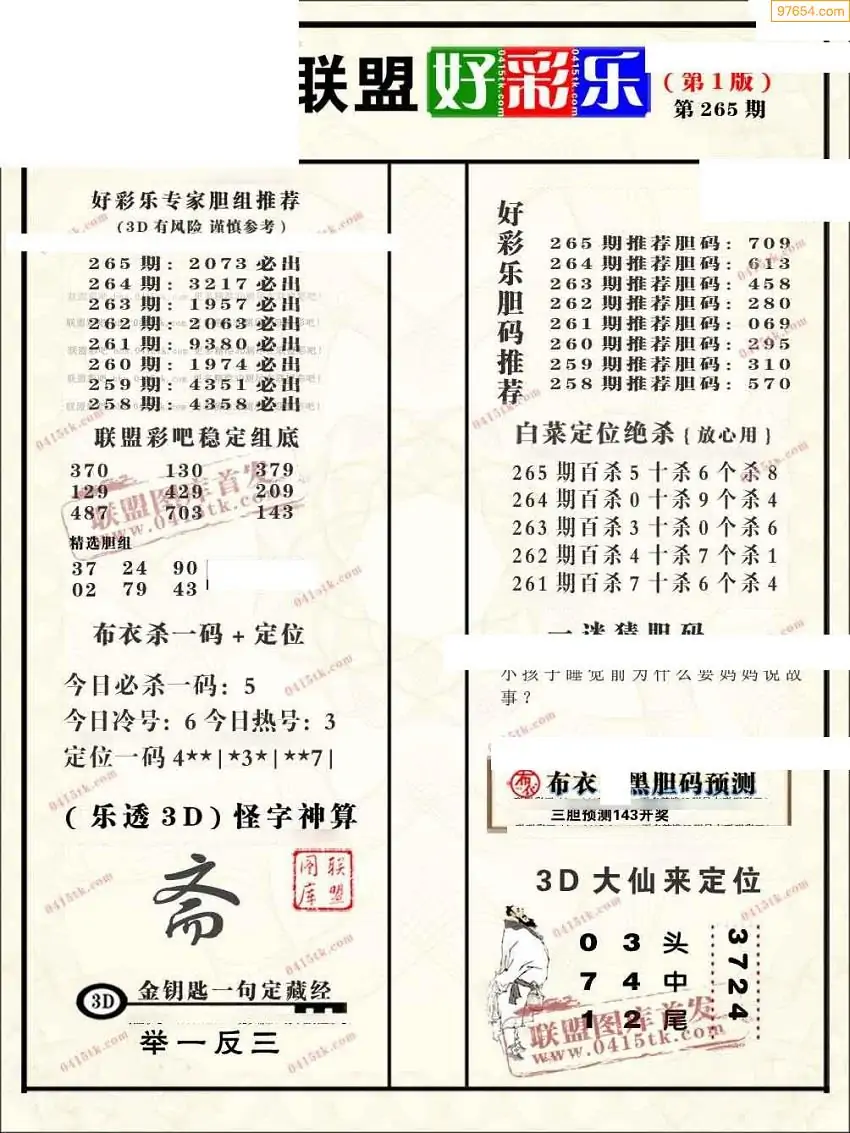 97654.com
联盟 好彩乐
0415tk.com
0415tk.com
(第1版)
第265期
好彩乐专家胆组推荐
(3D有风险 谨慎参考)
265期: 2073必出
264期: 3217必出
263期: 1957必出
262期: 2063必出
261期: 9380必出
260期: 1974必出
259期: 4351必出
258期: 4358必出
联盟彩吧稳定组底
370 130 379
129 429 209
487 703 143
联盟图库首发
www.0415tk.com
精选胆组
37 24 90
02 79 43
布衣杀一码+定位
今日必杀一码: 5
今日冷号: 6 今日热号: 3
定位一码 4**|*3*|**7|
(乐透3D)怪字神算
斋
联盟
图库
3D 金钥匙一句定藏经
举一反三
好彩乐胆码推荐
265期推荐胆码: 709
264期推荐胆码: 613
263期推荐胆码: 458
262期推荐胆码: 280
261期推荐胆码: 069
260期推荐胆码: 295
259期推荐胆码: 310
258期推荐胆码: 570
白菜定位绝杀{放心用}
265期百杀5十杀6个杀8
264期百杀0十杀9个杀4
263期百杀3十杀0个杀6
262期百杀4十杀7个杀1
261期百杀7十杀6个杀4
一谜猜胆码
小孩子睡觉前为什么要妈妈说故
事?
布衣 黑胆码预测
三胆预测143开奖
3D大仙来定位
0 3 头
7 4 中
1 2 尾
3724
联盟图库首发
www.0415tk.com